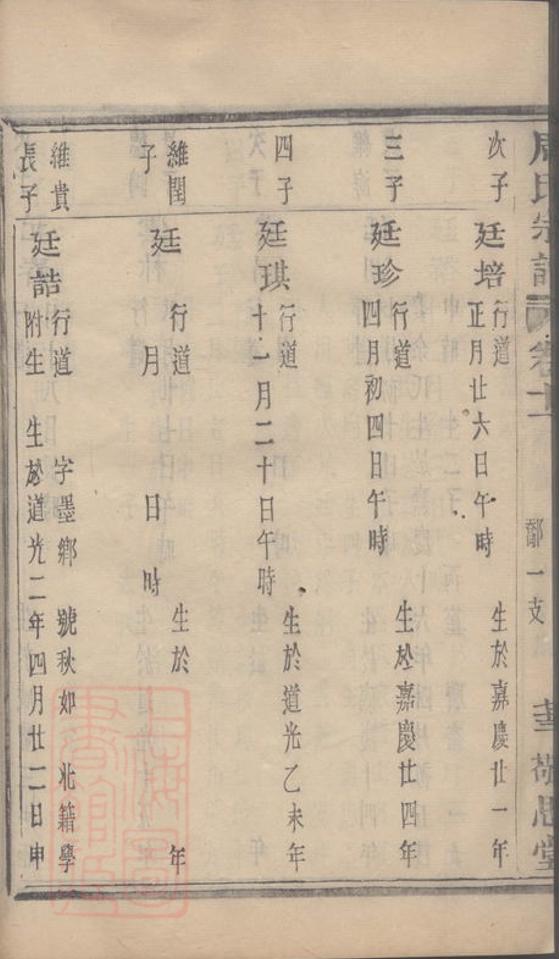 周氏宗譜 卷十一 鄒一支 敬思堂
次子 廷培 行道 生於嘉慶廿一年
正月廿六日午時
三子 廷珍 行道 生於嘉慶廿四年
四月初四日午時
四子 廷琪 行道 生於道光乙未年
十一月二十日午時
維閏
子 廷 行道 生於 年
月 日 時
維貴
長子 廷誥 行道 字墨鄉 號秋如 北籍學
附生 生於道光二年四月廿二日申
上海圖書館藏